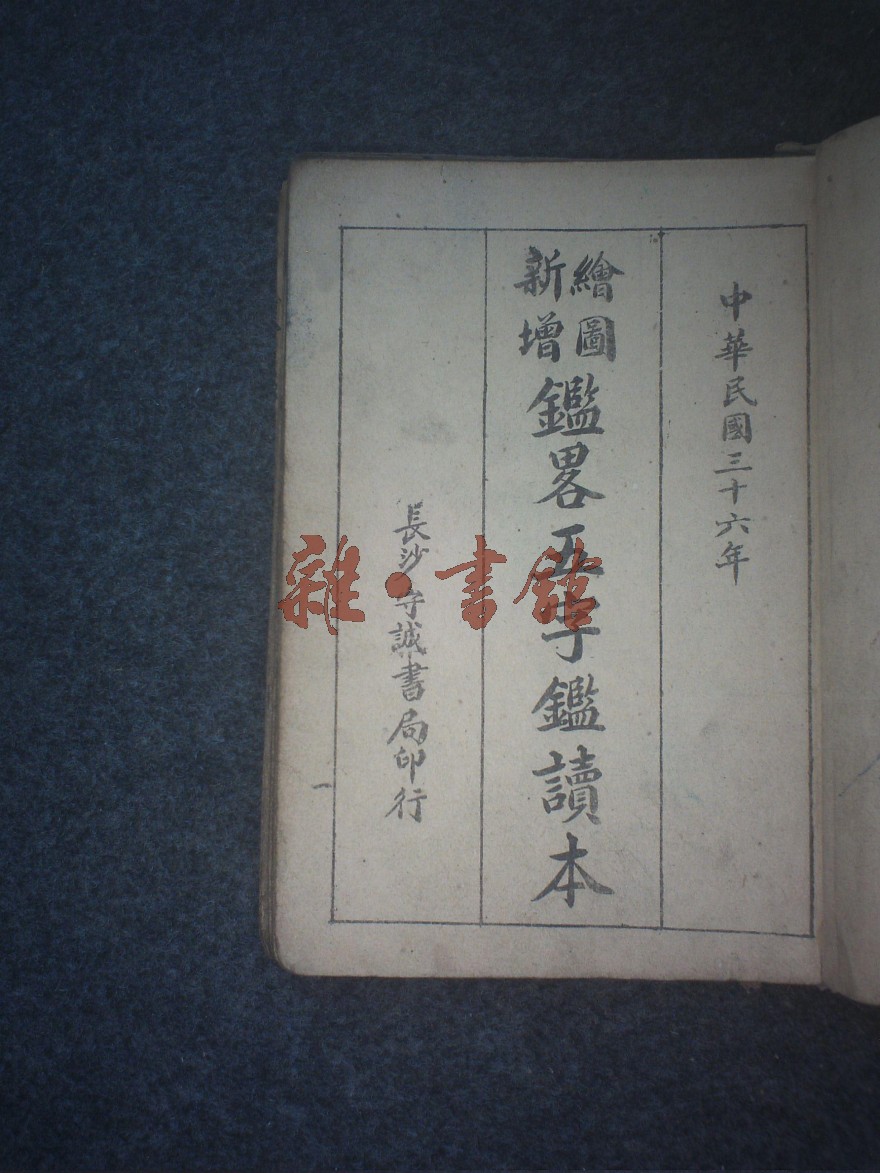 中華民國三十六年
繪圖
新增
鑑畧五字鑑讀本
長沙守誠書局印行
一
雜·書館